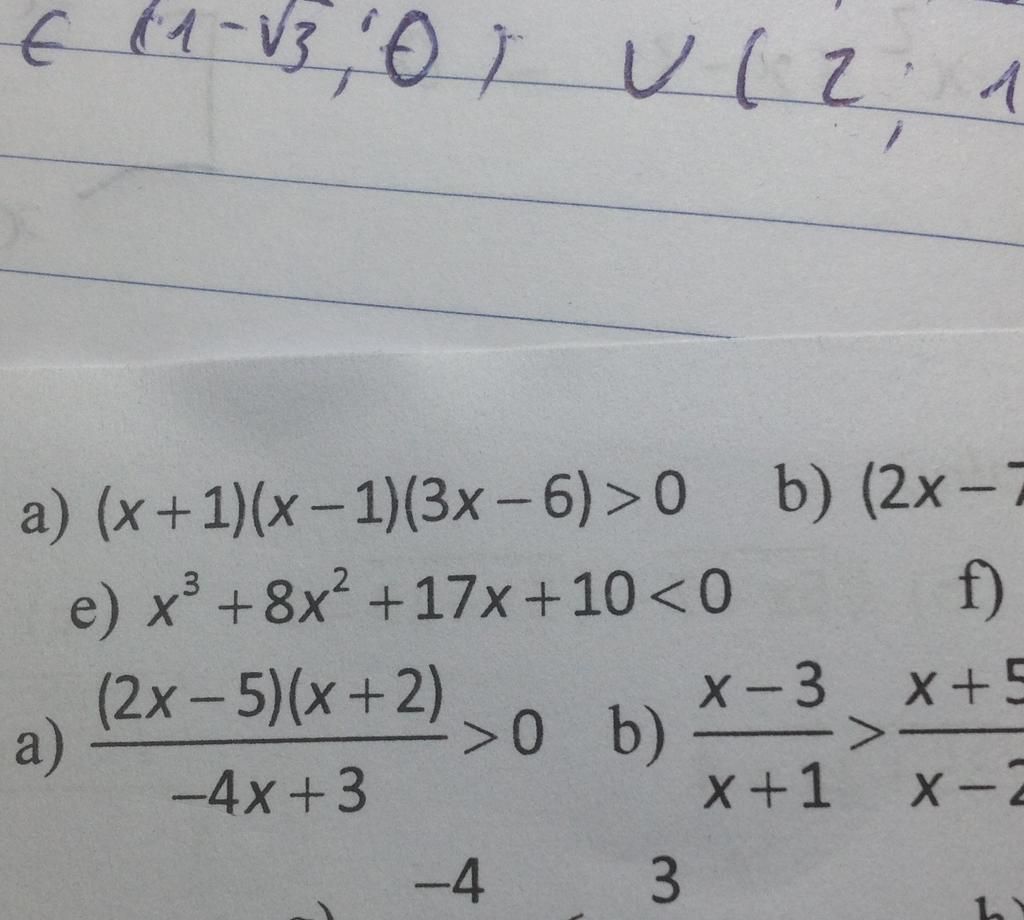 ∈ (1-√3; 0) ∪ (2; 1
a) (x+1)(x−1)(3x−6)>0 b) (2x−7
e) x³+8x²+17x+10<0 f)
a) (2x−5)(x+2)/−4x+3 >0 b) x−3/x+1 > x+5/x−2
−4 3